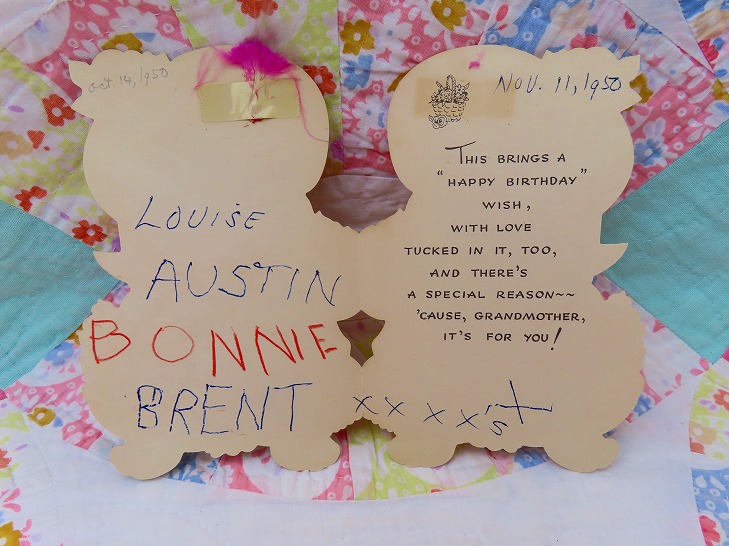 oct. 14, 1950
LOUISE
AUSTIN
BONNIE
BRENT
NOV. 11, 1950
THIS BRINGS A
"HAPPY BIRTHDAY"
WISH,
WITH LOVE
TUCKED IN IT, TOO,
AND THERE'S
A SPECIAL REASON~~
'CAUSE, GRANDMOTHER,
IT'S FOR YOU!
xx xx's